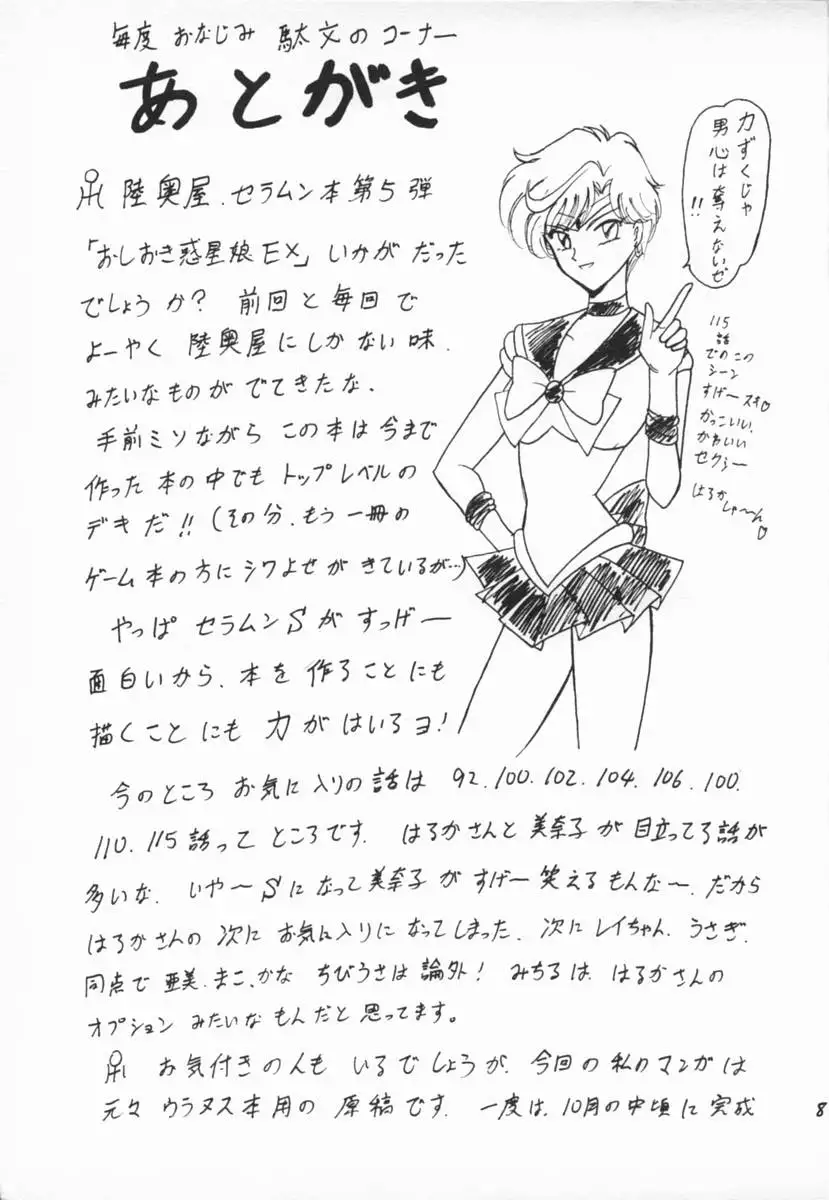 毎度 おなじみ 駄文のコーナー
あとがき
陸奥屋、セラムン本第5弾
「おしおき惑星娘EX」いかがだった
でしょうか? 前回と毎回で
よーやく 陸奥屋にしかない味、
みたいなものがでてきたな、
手前ミソながら この本は今まで
作った本の中でも トップレベルの
デキだ!!(その分、もう一冊の
ゲーム本の方にシワよせがきているが…)
やっぱ セラムンSが すっげー
面白いから、本を作ることにも
描くことにも 力がはいるヨ!
今のところ お気に入りの話は 92.100.102.104.106.100.
110.115話って ところです. はるかさんと美奈子が目立ってる話が
多いな. いや〜Sになって美奈子がすげー笑えるもんな〜. だから
はるかさんの次にお気に入りになってしまった. 次にレイちゃん. うさぎ.
同点で亜美.まこ、かな ちびうさは論外! みちるは、はるかさんの
オプションみたいなもんだと思ってます。
お気付きの人も いるでしょうが、今回の私のマンガは
元々ウラヌス本用の原稿です. 一度は、10月の中頃に完成
力ずくじゃ
男心は奪えないぜ
!!
115
話
でのこの
シーン
すげースキ♡
かっこいい、
かわいい
セクシー
はるか
しゃ〜ん♡
8